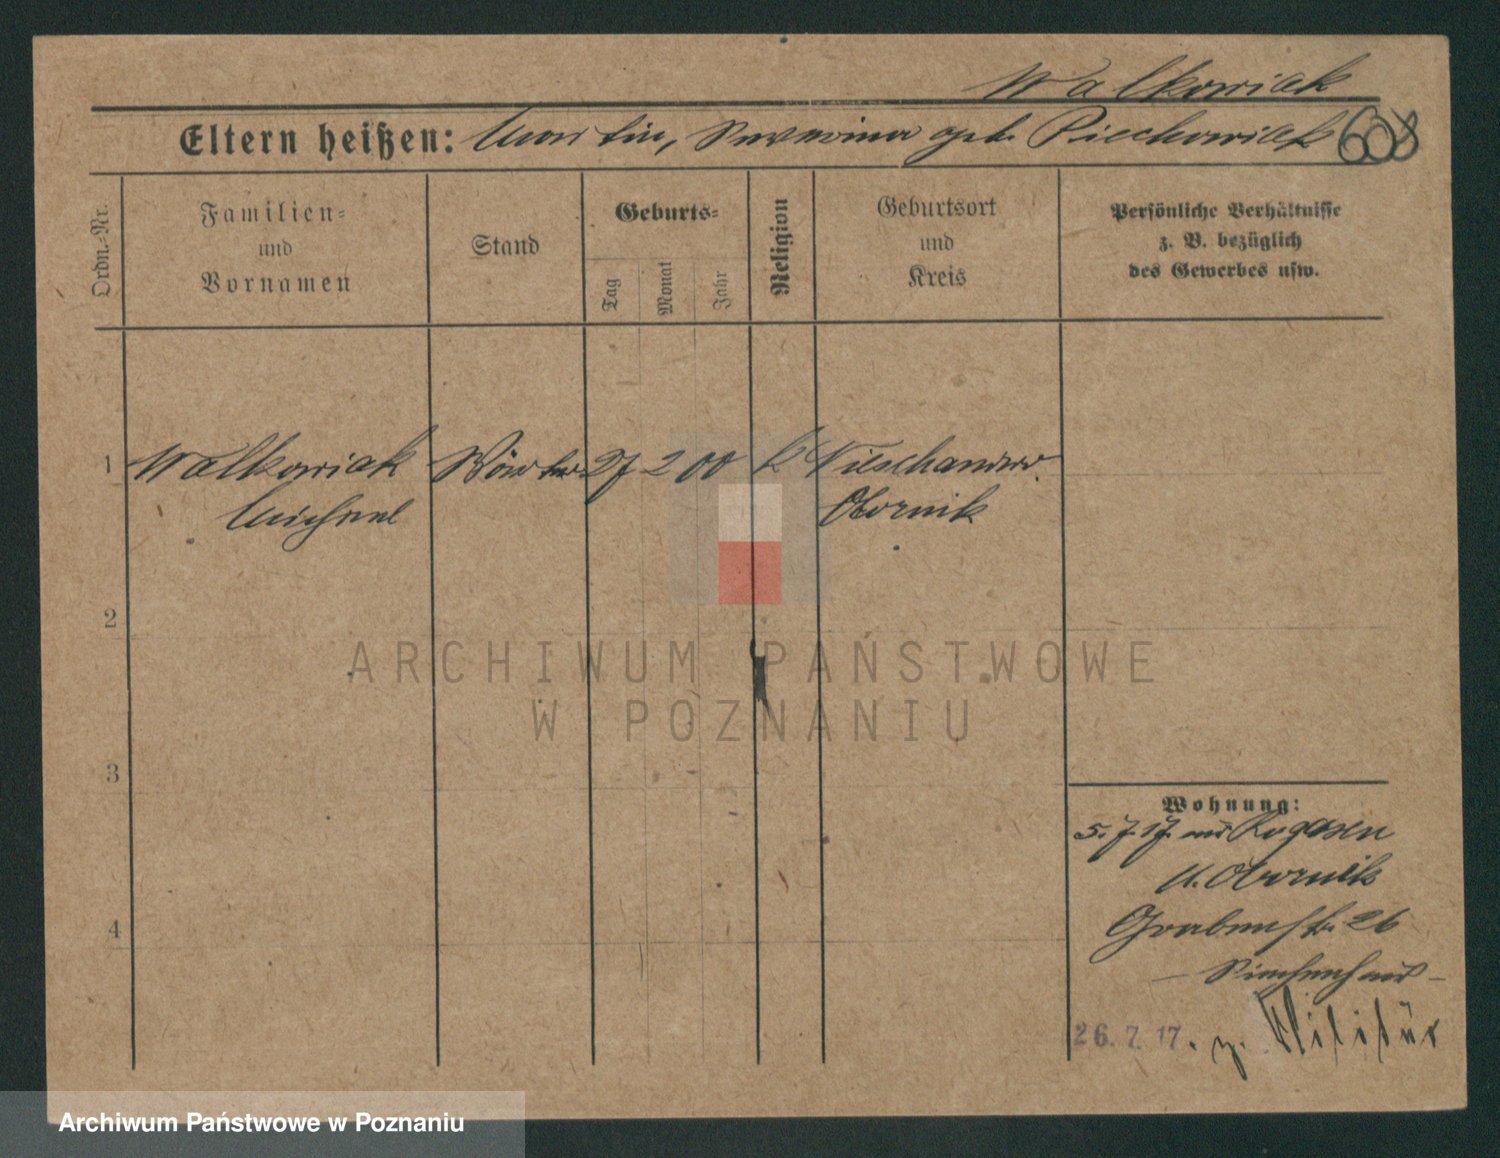 Walkowiak
Eltern heißen: Martin, Severina geb. Piechowiak 608
Ordn.-Nr.
Familien-
und
Vornamen
Stand
Geburts-
Tag
Monat
Jahr
Religion
Geburtsort
und
Kreis
Persönliche Verhältnisse
z. B. bezüglich
des Gewerbes usw.
1 Walkowiak Wärter 27 2 00 k
Michael Obornik
2
3
4
Wohnung:
5. 7. 17. aus Rogasen
Kr. Obornik
Grabenstr. 26
– Siechenhaus –
26. 7. 17. z. Militär
ARCHIWUM PAŃSTWOWE
W POZNANIU
Archiwum Państwowe w Poznaniu